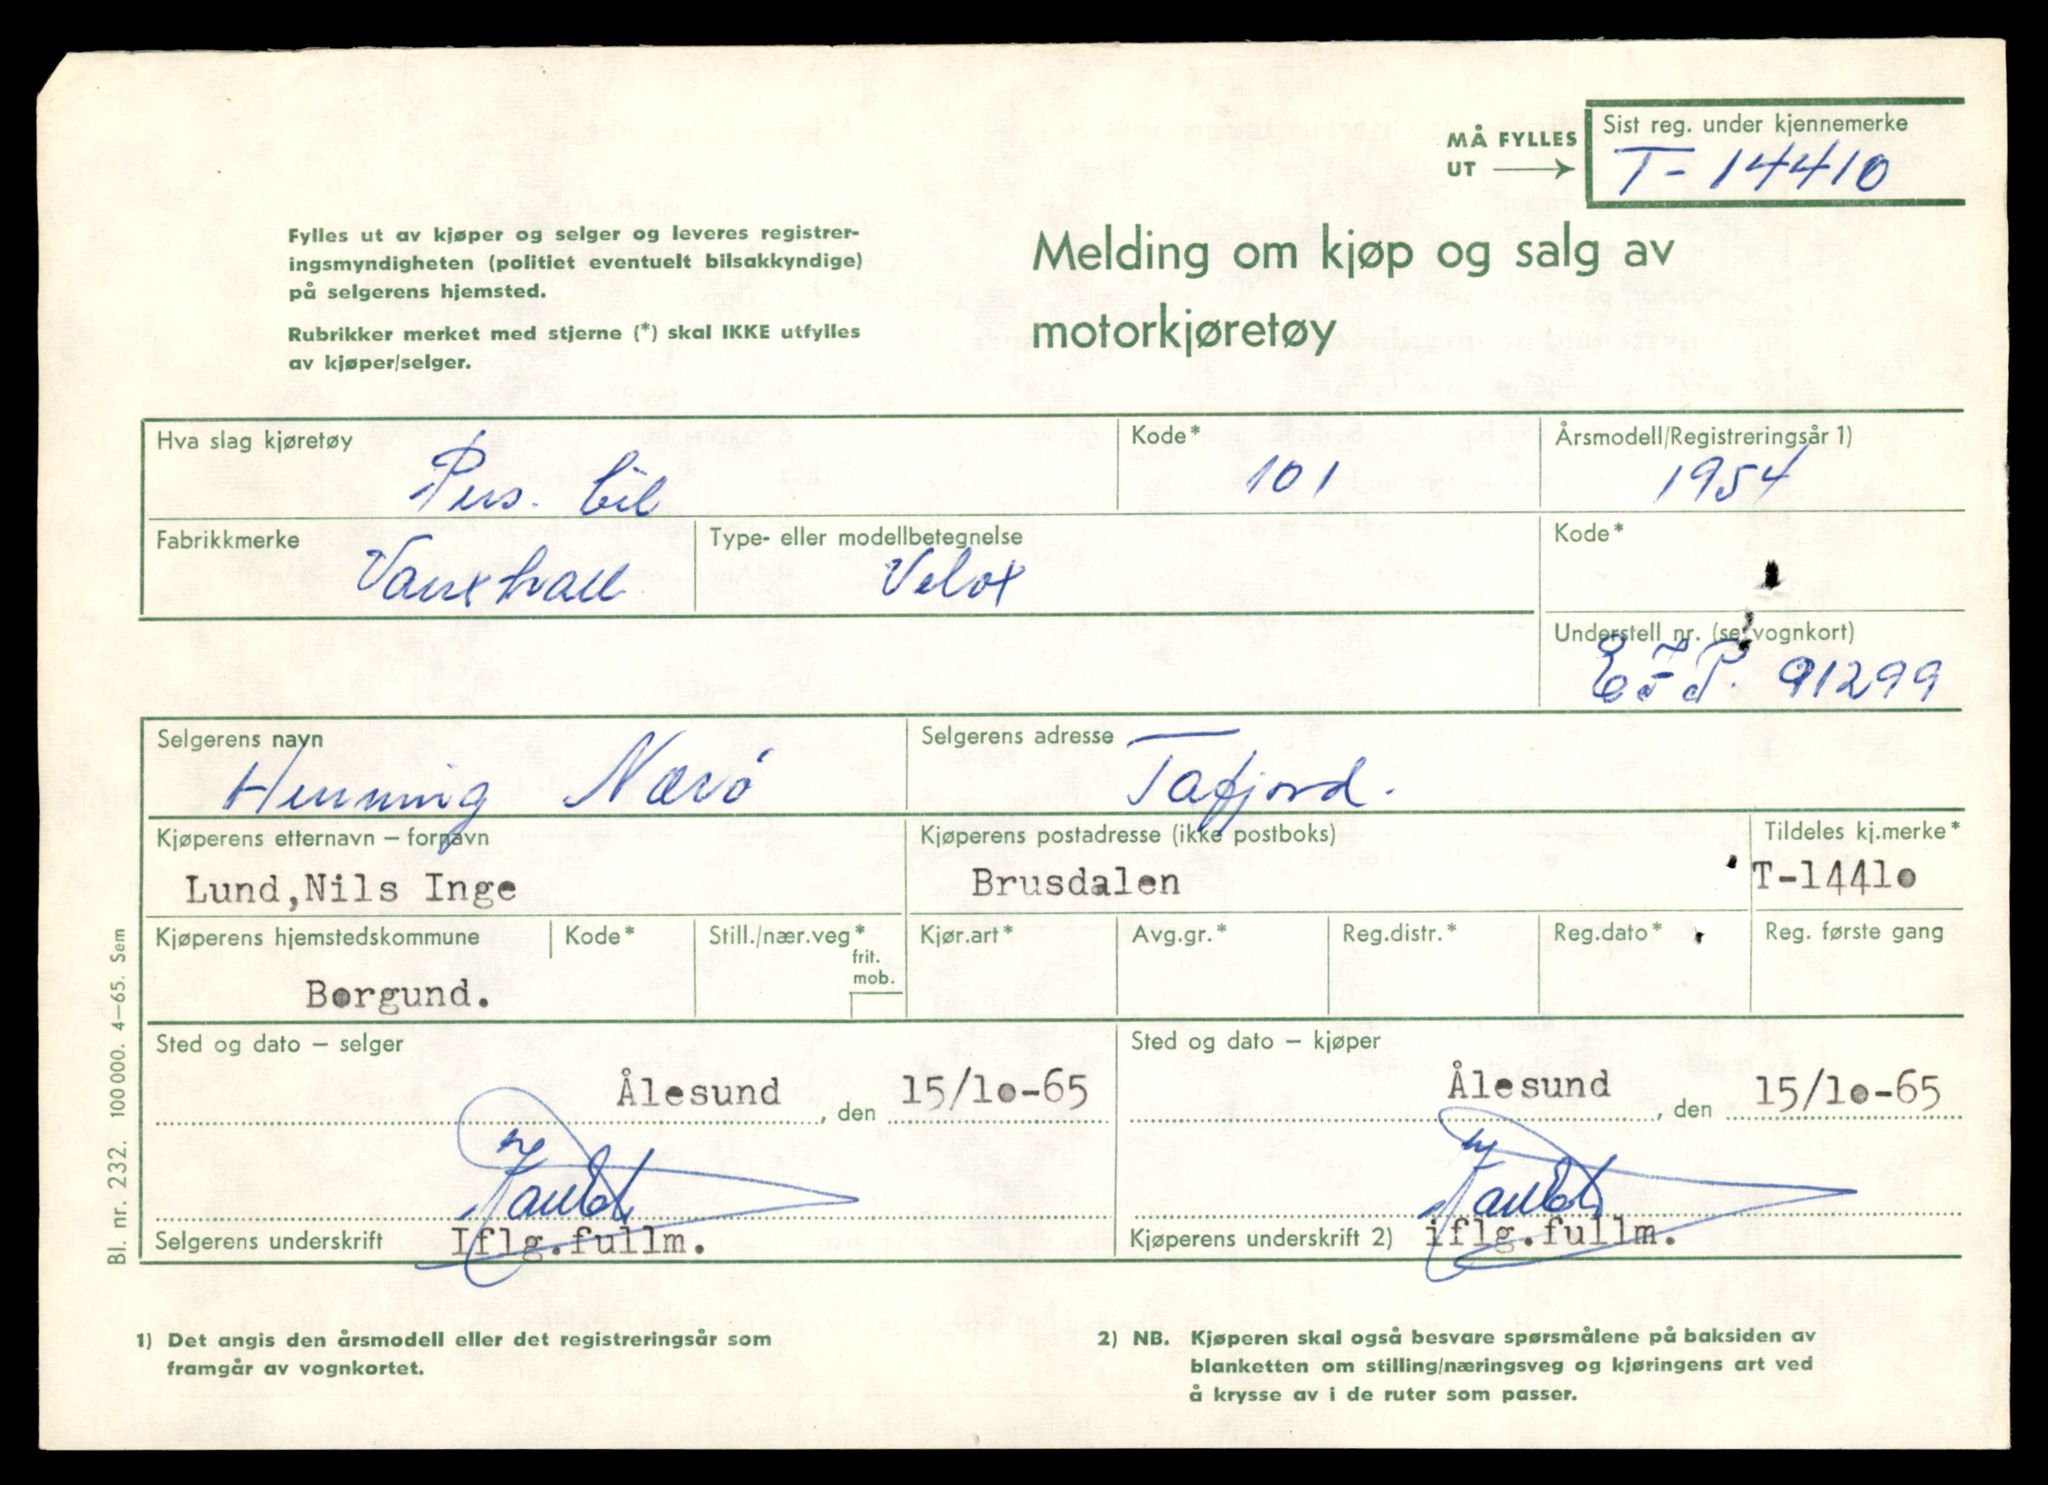 MÅ FYLLES
UT
Sist reg. under kjennemerke
T-14410
Fylles ut av kjøper og selger og leveres registrer-
ingsmyndigheten (politiet eventuelt bilsakkyndige)
på selgerens hjemsted.
Rubrikker merket med stjerne (*) skal IKKE utfylles
av kjøper/selger.
Melding om kjøp og salg av
motorkjøretøy
Hva slag kjøretøy
Pers. bil
Kode*
101
Årsmodell/Registreringsår 1)
1954
Fabrikkmerke
Vauxhall
Type- eller modellbetegnelse
Velox
Kode*
Understell nr. (se vognkort)
91299
Selgerens navn
Henning Nærø
Selgerens adresse
Tafjord.
Kjøperens etternavn – fornavn
Lund,Nils Inge
Kjøperens postadresse (ikke postboks)
Brusdalen
Tildeles kj.merke*
T-14410
Kjøperens hjemstedskommune
Borgund.
Kode*
Still./nær.veg*
frit.
mob.
Kjør.art*
Avg.gr.*
Reg.distr.*
Reg.dato*
Reg. første gang
Sted og dato – selger
Ålesund, den 15/10-65
Selgerens underskrift
Iflg.fullm.
Sted og dato – kjøper
Ålesund, den 15/10-65
Kjøperens underskrift 2)
iflg.fullm.
Bl. nr. 232. 100 000. 4–65. Sem
1) Det angis den årsmodell eller det registreringsår som
framgår av vognkortet.
2) NB. Kjøperen skal også besvare spørsmålene på baksiden av
blanketten om stilling/næringsveg og kjøringens art ved
å krysse av i de ruter som passer.